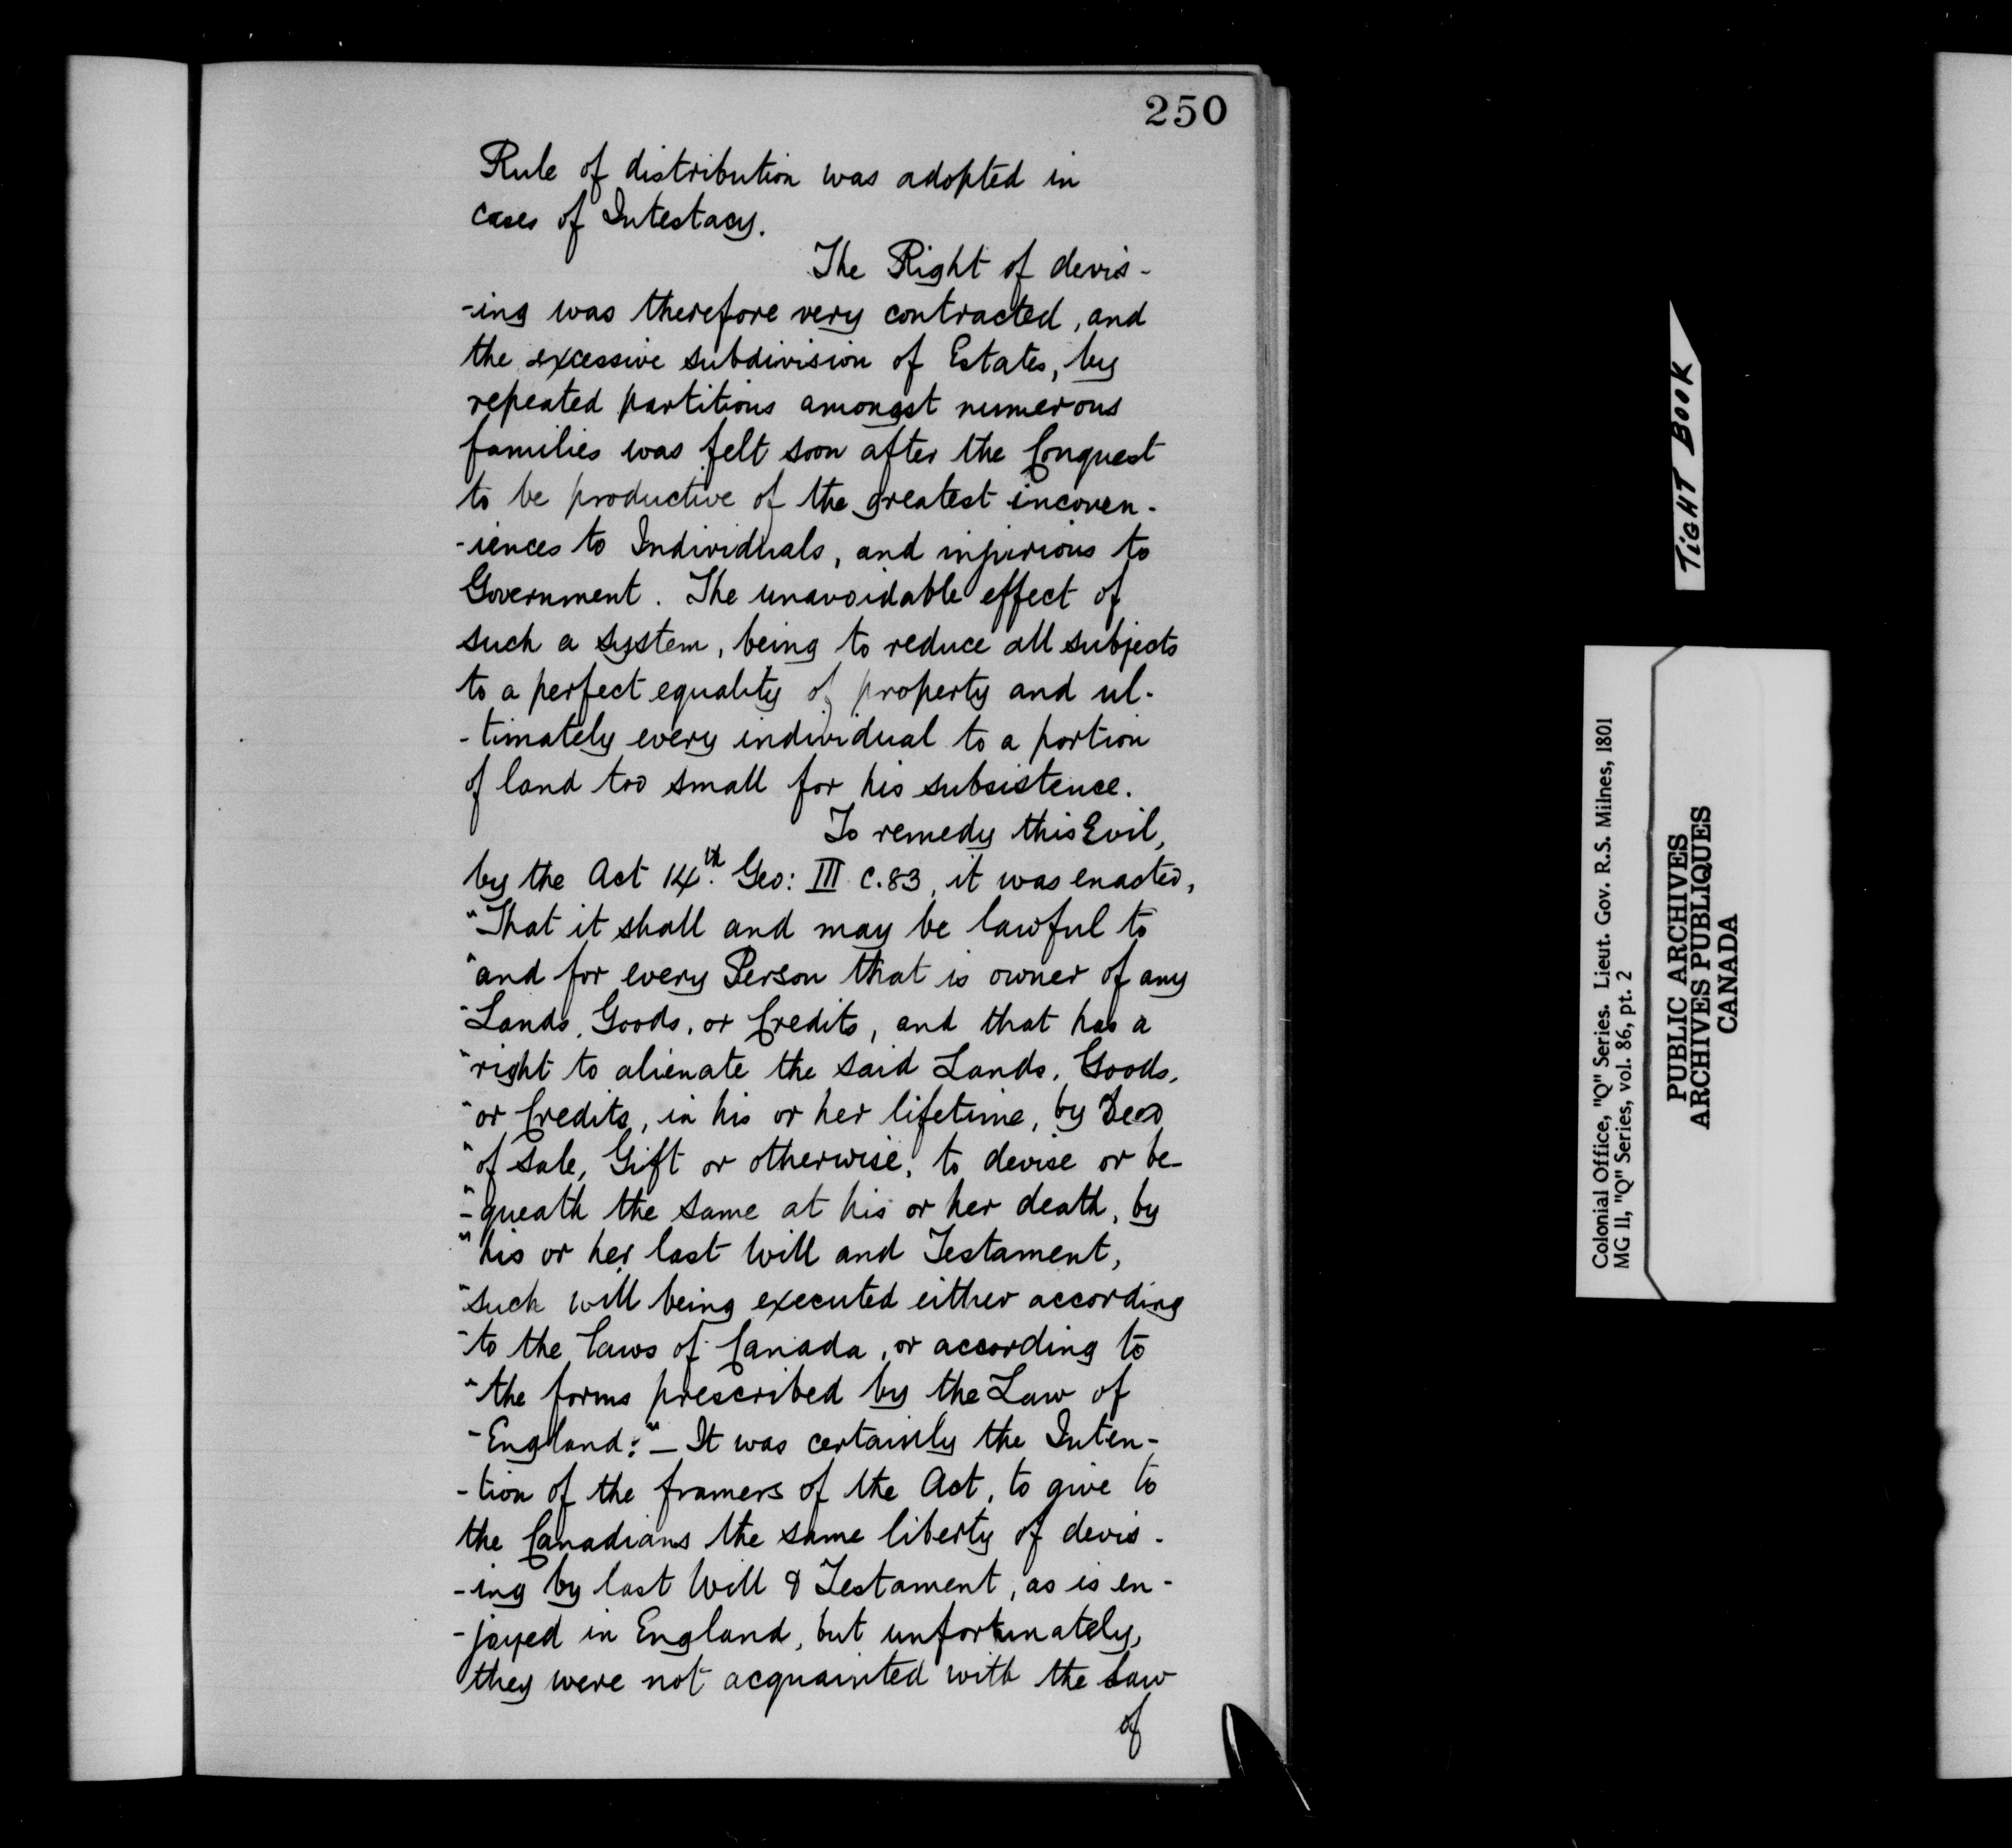 250
Rule of distribution was adopted in
cases of Intestacy.
The Right of devis-
-ing was therefore very contracted, and
the excessive subdivision of Estates, by
repeated partitions amongst numerous
families was felt soon after the Conquest
to be productive of the greatest inconven-
-iences to Individuals, and injurious to
Government. The unavoidable effect of
such a system, being to reduce all subjects
to a perfect equality of property and ul-
-timately every individual to a portion
of land too small for his subsistence.
To remedy this Evil,
by the Act 14th. Geo: III c.83, it was enacted,
"That it shall and may be lawful to
"and for every Person that is owner of any
"Lands, Goods, or Credits, and that has a
"right to alienate the said Lands, Goods,
"or Credits, in his or her lifetime, by Deed
"of Sale, Gift or otherwise, to devise or be-
"-queath the same at his or her death, by
"his or her last Will and Testament,
"such will being executed either according
"to the Laws of Canada, or according to
"the forms prescribed by the Law of
"England:"—It was certainly the Inten-
-tion of the framers of the Act, to give to
the Canadians the same liberty of devis-
-ing by last Will & Testament, as is en-
-joyed in England, but unfortunately,
they were not acquainted with the Law
of
TIGHT BOOK
Colonial Office, "Q" Series. Lieut. Gov. R.S. Milnes, 1801
MG 11, "Q" Series, vol. 86, pt. 2
PUBLIC ARCHIVES
ARCHIVES PUBLIQUES
CANADA